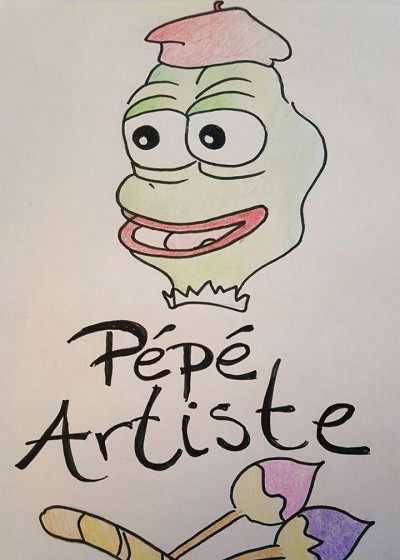 Pépé
Artiste